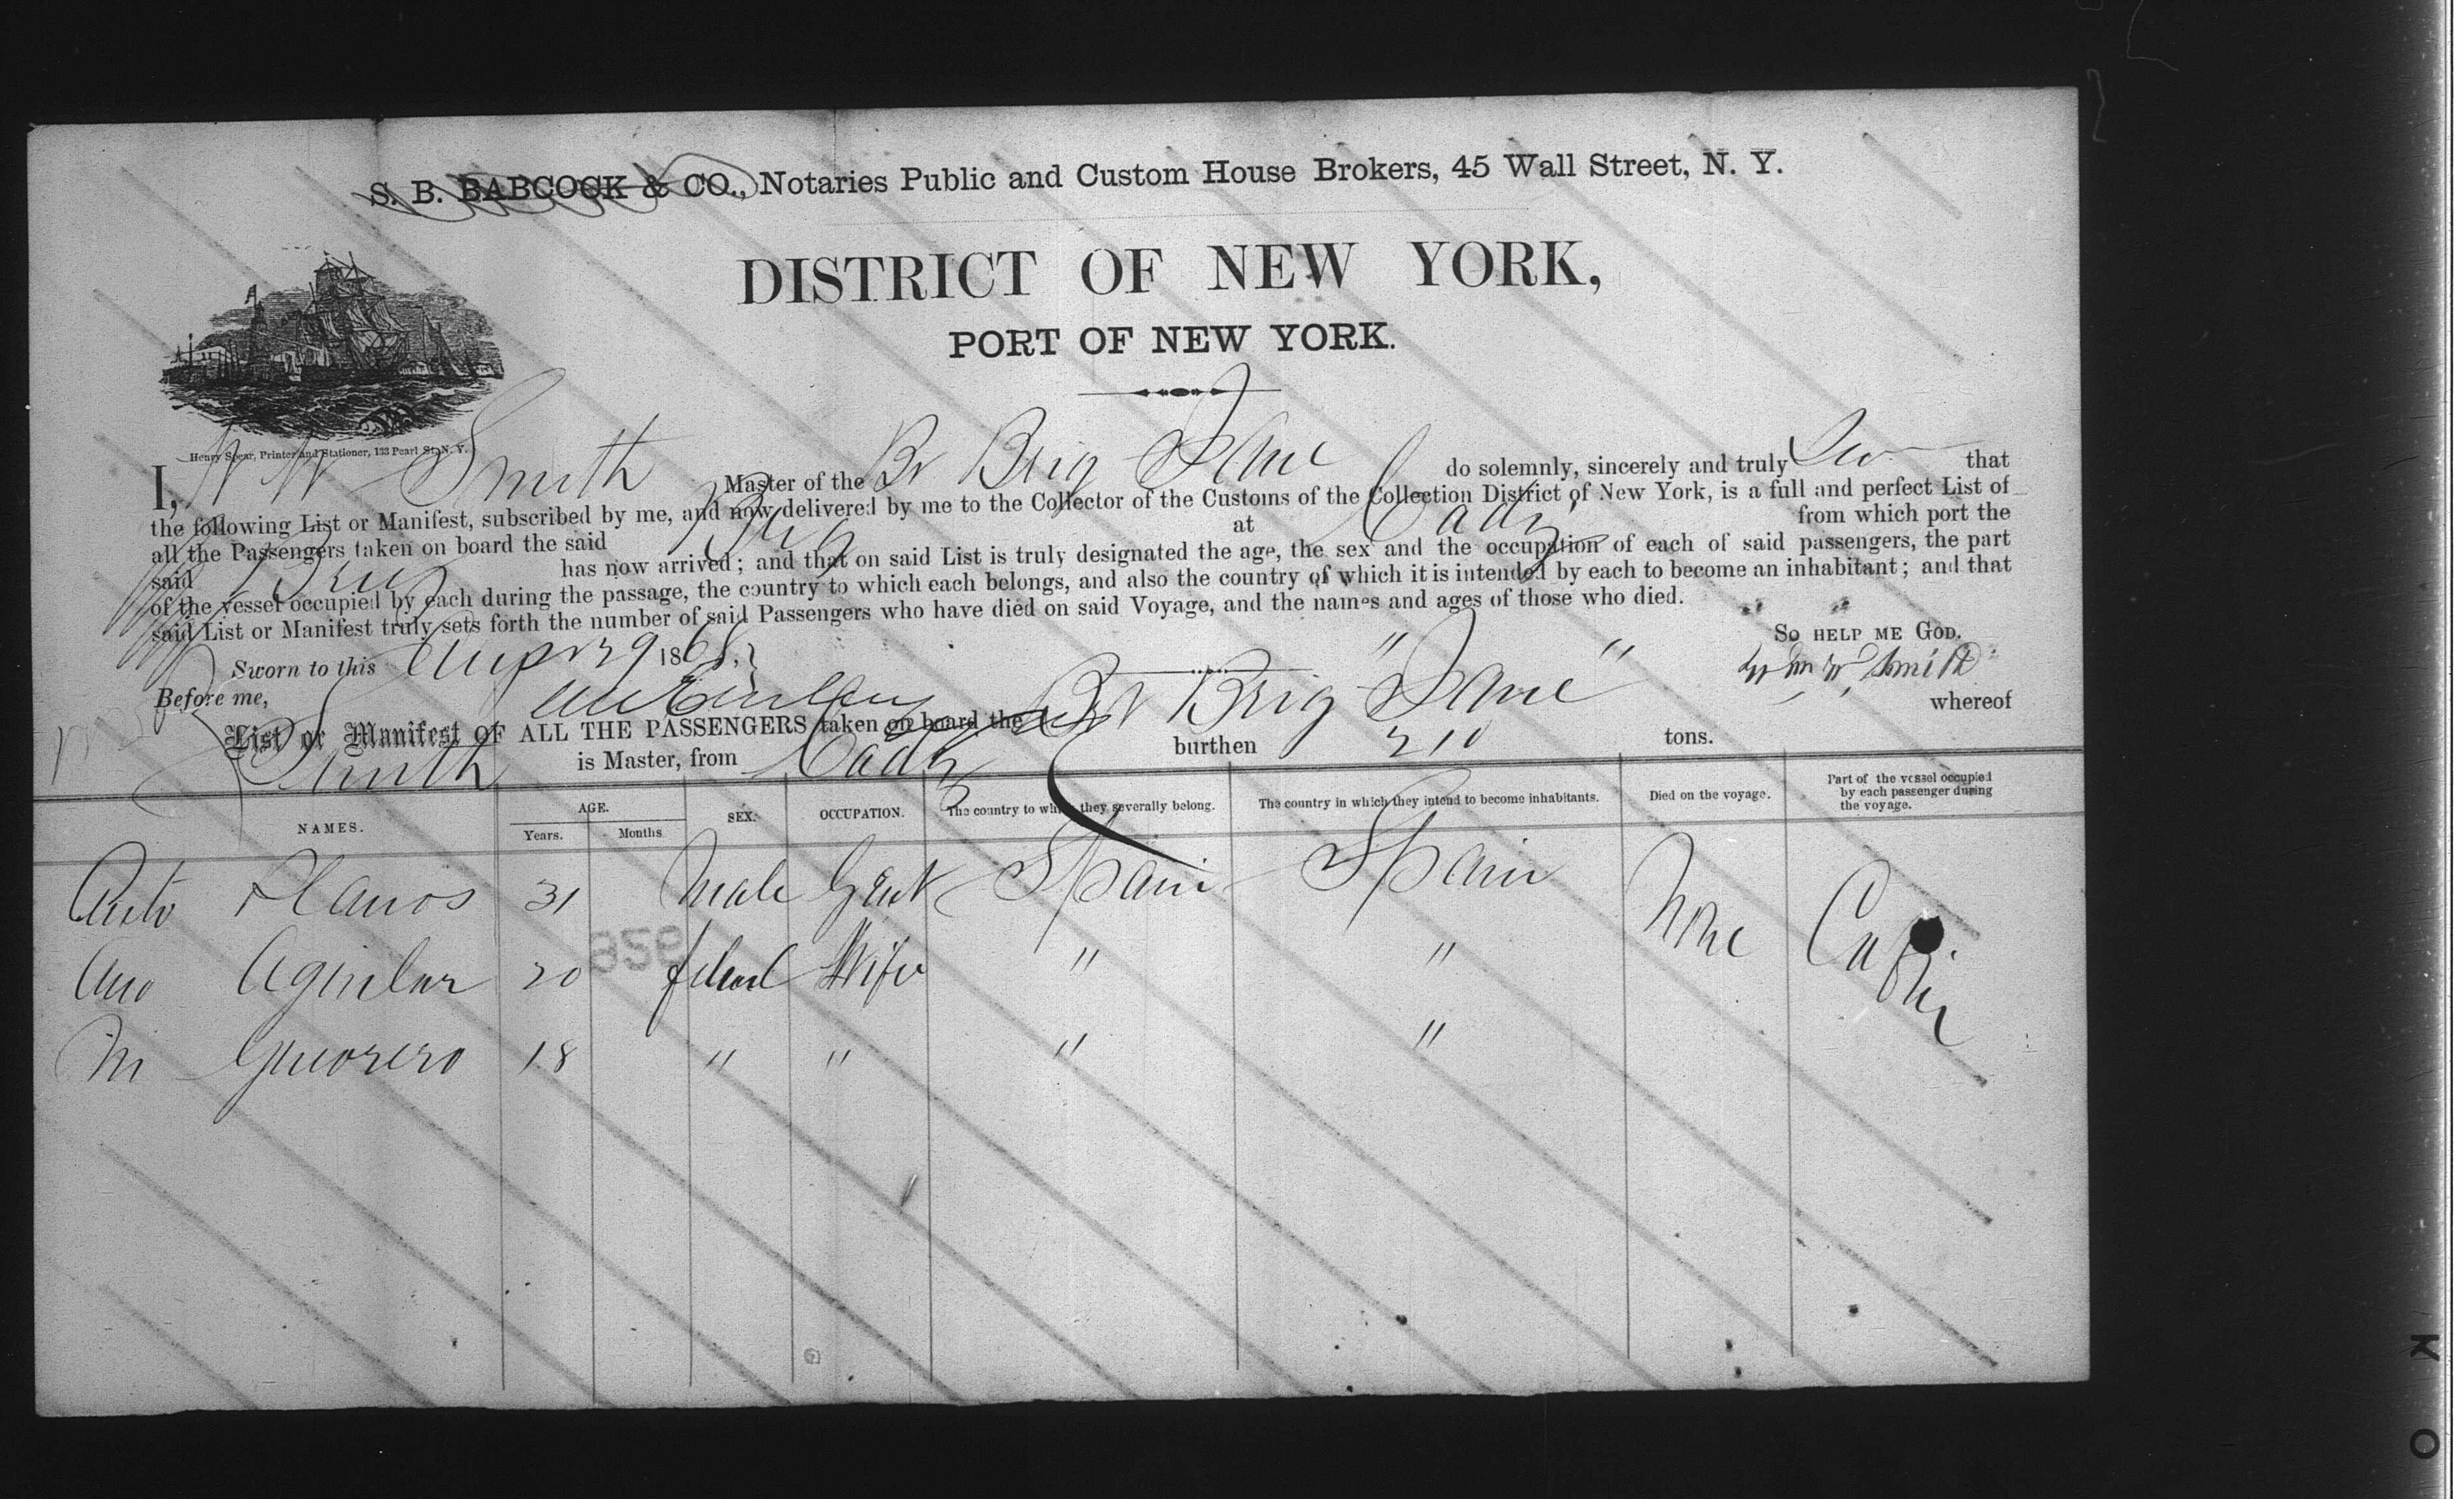 S. B. BABCOCK & CO., Notaries Public and Custom House Brokers, 45 Wall Street, N. Y.
DISTRICT OF NEW YORK,
PORT OF NEW YORK.
Henry Spear, Printer and Stationer, 133 Pearl St. N. Y.
I, W W Smith Master of the Br Brig Jane do solemnly, sincerely and truly that
the following List or Manifest, subscribed by me, and now delivered by me to the Collector of the Customs of the Collection District of New York, is a full and perfect List of
all the Passengers taken on board the said Brig at Cadiz from which port the
said Brig has now arrived; and that on said List is truly designated the age, the sex and the occupation of each of said passengers, the part
of the vessel occupied by each during the passage, the country to which each belongs, and also the country of which it is intended by each to become an inhabitant; and that
said List or Manifest truly sets forth the number of said Passengers who have died on said Voyage, and the names and ages of those who died.
SO HELP ME GOD.
Sworn to this 29 1868,
Wm W Smith
Before me,
List or Manifest OF ALL THE PASSENGERS taken on board the Br Brig "Jane" whereof
Smith is Master, from Cadiz burthen 210 tons.
NAMES. AGE. Years. Months SEX. OCCUPATION. The country to which they severally belong. The country in which they intend to become inhabitants. Died on the voyage. Part of the vessel occupied by each passenger during the voyage.
Anto Llanos 31 Male Gent Spain Spain None Cabin
Ana Aguilar 20 Wife " "
M Guerrero 18 " " " "
829